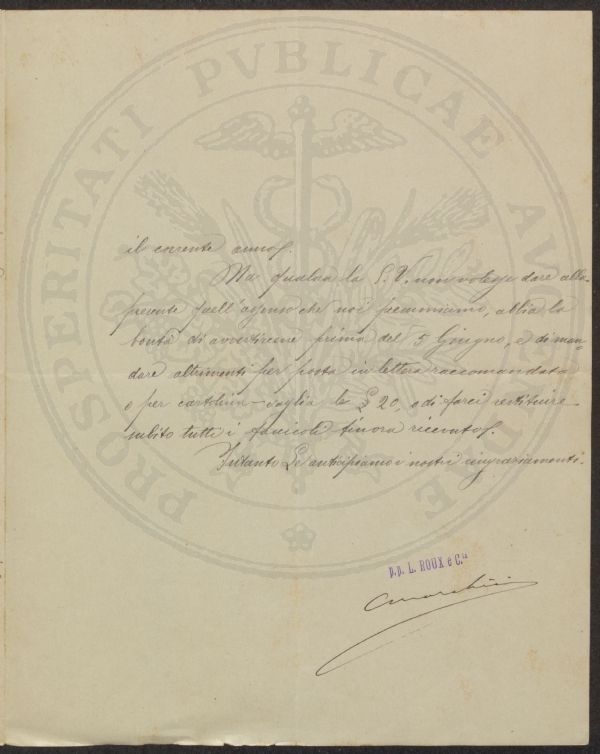 PROSPERITATI PVBLICAE AVGENDAE
il corrente anno).
Ma qualora la S. V. non volesse dare alla
presente quell'assenso che noi presumiamo, abbia la
bontà di avvertircene prima del 5 Giugno, e di man-
dare altrimenti per posta in lettera raccomandata
o per cartolina-vaglia le £ 20, o di farci restituire
subito tutti i fascicoli finora ricevuti).
Intanto Le anticipiamo i nostri ringraziamenti.
p.p. L. ROUX e C.ia